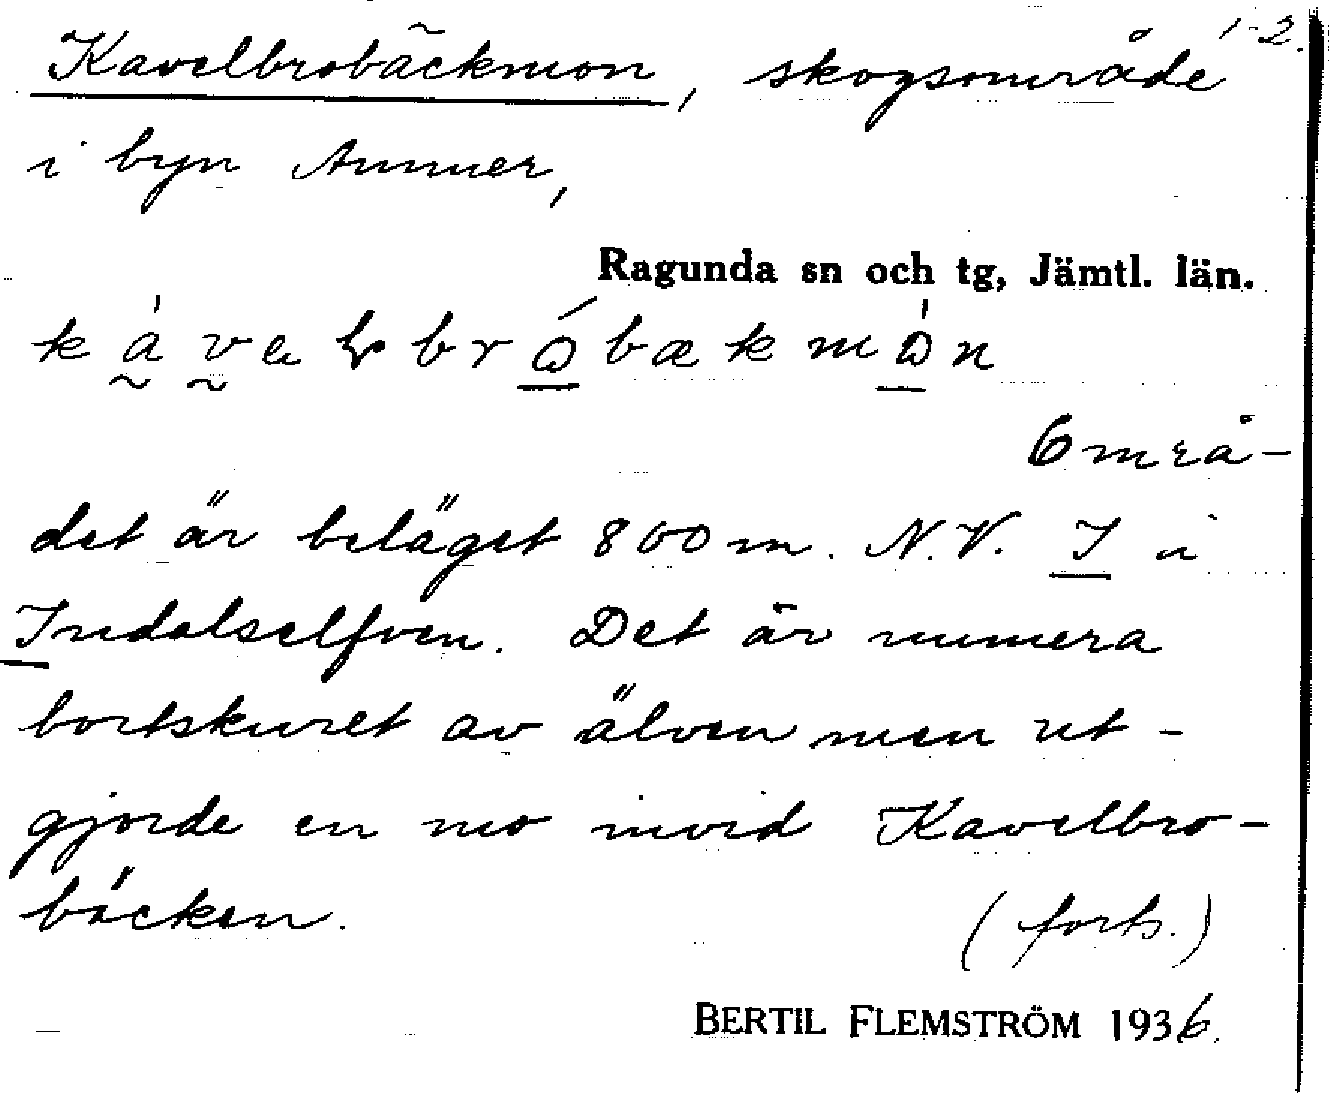 Kavelbrobäckmon, skogsområde 1-2.
i byn Ammer,
Ragunda sn och tg, Jämtl. län.
Områ-
det är beläget 800 m. N.V. I i
Indalselfven. Det är numera
bortskuret av älven men ut-
gjorde en mo invid Kavelbro-
bäcken. (forts.)
BERTIL FLEMSTRÖM 1936.